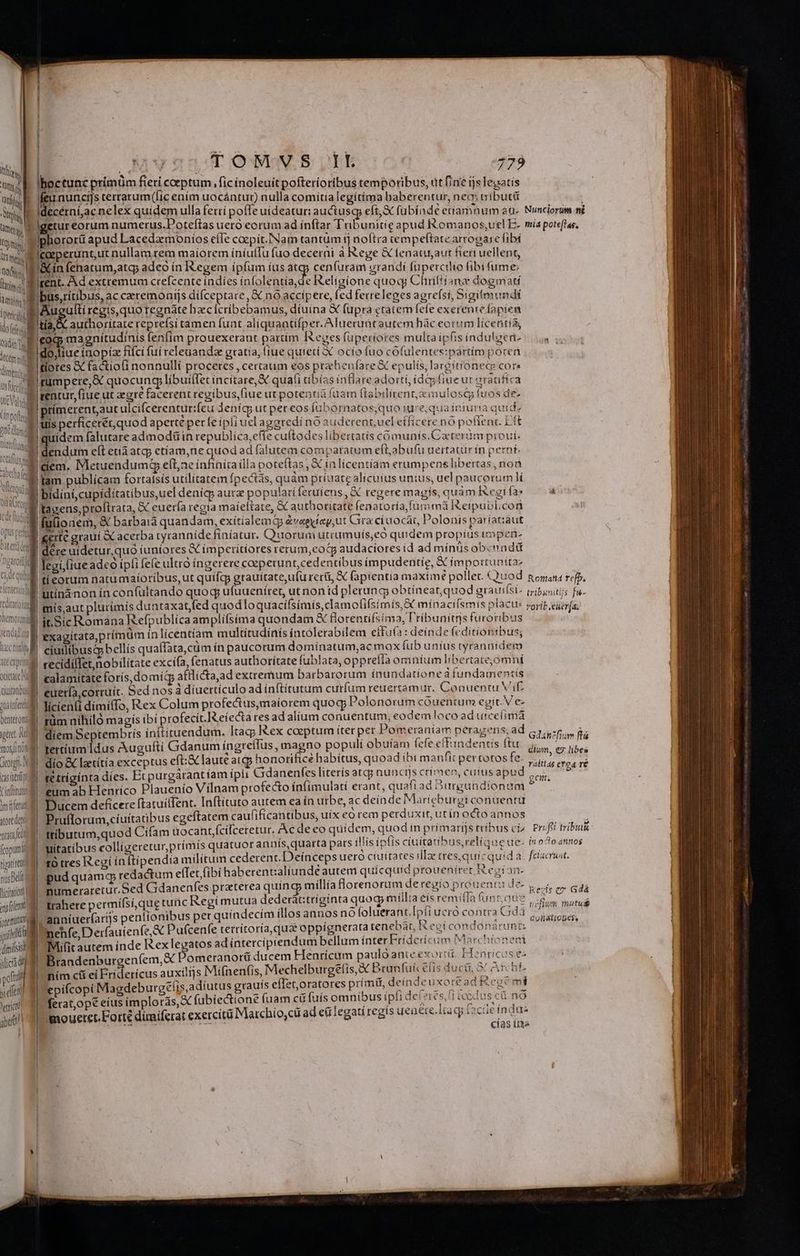 TOMVS II. 779
hoc tunc primùm fieri cœptum, sic inoleuit posterioribus temporibus, ut sine ijs legatis
seu nuncijs terrarum (sic enim uocantur) nulla comitia legitima haberentur, necȝ tributū
decerni, ac ne lex quidem ulla ferri posse uideatur: auctusqȝ est, & subindè etiamnum au- Nunciorum ni
getur eorum numerus. Potestas uerò eorum ad instar Tribunitiæ apud Romanos, uel E- mia potestas.
phororū apud Lacedæmonios esse cœpit. Nam tantùm ij nostra tempestate arrogare sibi
cœperunt, ut nullam rem maiorem iniussu suo decerni à Rege & senatu, aut fieri uellent,
& in senatum, atqȝ adeò in Regem ipsum ius atqȝ censuram grandi supercilio sibi sume-
rent. Ad extremum crescente indies insolentia, de Religione quoqȝ Christianæ dogmati
bus, ritibus, ac cæremonijs disceptare, & nō accipere, sed ferre leges agressi, Sigismundi
Augusti regis, quo regnāte hæc scribebamus, diuina & supra ætatem sese exerente sapien
tia, & authoritate repressi tamen sunt aliquantisper. Aluerunt autem hāc eorum licentiā,
eoqȝ magnitudinis sensim prouexerunt partim Reges superiores multa ipsis indulgen-
do, siue inopiæ fisci sui releuandæ gratia, siue quieti & ocio suo cōsulentes: partim poten
tiores & factiosi nonnulli proceres, certatim eos præhensare & epulis, largitioneqȝ cor-
rumpere, & quocunqȝ libuisset incitare, & quasi tibias inflare adorti, idqȝ siue ut gratifica
rentur, siue ut ægrè facerent regibus, siue ut potentiā suam stabilirent, æmulosqȝ suos de-
primerent, aut ulciscerentur: seu deniqȝ ut per eos subornatos, quo iure, qua iniuria quid-
uis perficerēt, quod apertè per se ipsi uel aggredi nō auderent, uel efficere nō possent. Est
quidem salutare admodū in republica, esse custodes libertatis cōmunis. Cæterùm proui-
dendum est etiā atqȝ etiam, ne quod ad salutem comparatum est, abusu uertatur in perni-
ciem. Metuendumqȝ est, ne infinita illa potestas, & in licentiam erumpens libertas, non
tam publicam fortassis utilitatem spectās, quàm priuatæ alicuius unius, uel paucorum li
bidini, cupiditatibus, uel deniqȝ auræ populari seruiens, & regere magis, quàm Regi sa-
tagens, prostrata, & euersa regia maiestate, & authoritate senatoria, summā Reipubl. con
fusionem, & barbariā quandam, exitialemqȝ ἀναρχίαν, ut Græci uocāt, Polonis pariat: aut
certè graui & acerba tyrannide finiatur. Quorum utrumuis, eò quidem propiùs impen-
dère uidetur, quò iuniores & imperitiores rerum, eoqȝ audaciores id ad minùs obeundū
legi, siue adeò ipsi sese ultrò ingerere cœperunt, cedentibus impudentiæ, & importunita-
ti eorum natu maioribus, ut quisqȝ grauitate, usu rerū, & sapientia maximè pollet. Quod Romana resp.
utinā non in consultando quoqȝ usu ueniret, ut non id plerunqȝ obtineat, quod grauissi- tribunitijs fu-
mis, aut plurimis duntaxat, sed quod loquacissimis, clamosissimis, & minacissmis placue- rorib. euersa.
rit. Sic Romana Respublica amplissima quondam & florentissima, Tribunitijs furoribus
exagitata, primùm in licentiam multitudinis intolerabilem effusa: deinde seditionibus,
ciuilibusqȝ bellis quassata, cùm in paucorum dominatum, ac mox sub unius tyrannidem
recidisset, nobilitate excisa, senatus authoritate sublata, oppressa omnium libertate, omni
calamitate foris, domiqȝ afflicta, ad extremum barbarorum inundatione à fundamentis
euersa, corruit. Sed nos à diuerticulo ad instituti cursum reuertamur. Conuentu Vis-
liciensi dimisso, Rex Colum profectus, maiorem quoqȝ Polonorum cōuentum egit. Ve-
rùm nihilò magis ibi profecit. Reiecta res ad alium conuentum, eodem loco ad uicesimā
diem Septembris instituendum. Itaqȝ Rex cœptum iter per Pomeraniam peragens, ad Gdanēsium stu
tertium Idus Augusti Gdanum ingressus, magno populi obuiam sese effundentis stu- dium, & libe-
dio & lætitia exceptus est: & lautè atqȝ honorificè habitus, quoad ibi mansit: per totos fe- ralitas erga re
rè triginta dies. Et purgārant iam ipsi Gdanenses literis atqȝ nuncijs crimen, cuius apud gem.
eum ab Henrico Plauenio Vilnam profecto insimulati erant, quasi ad Burgundionum
Ducem deficere statuissent. Instituto autem ea in urbe, ac deinde Marieburgi conuentu
Prussorum, ciuitatibus egestatem causificantibus, uix eò rem perduxit, ut in octo annos
tributum, quod Cisam uocant, scisceretur. Ac de eo quidem, quod in primarijs tribus ci- Prussi tributū
uitatibus colligeretur, primis quatuor annis, quarta pars illis ipsis ciuitatibus, reliquæ ue- in octo annos
rò tres Regi in stipendia militum cederent. Deinceps uerò ciuitates illæ tres, quicquid a- sciuerunt.
pud quamqȝ redactum esset, sibi haberent: aliundè autem quicquid proueniret Regi an-
numeraretur. Sed Gdanenses præterea quinqȝ millia florenorum de regio prouentu de- Regis & Gdā
trahere permissi, quæ tunc Regi mutua dederāt: triginta quoqȝ millia eis remissa sunt, quæ nēsium mutuæ
anniuersarijs pensionibus per quindecim illos annos nō soluerant. Ipsi uerò contra Gda donationes.
nense, Dersauiense, & Puscense territoria, quæ oppignerata tenebāt, Regi condonārunt.
Misit autem inde Rex legatos ad intercipiendum bellum inter Fridericum Marchionem
Brandenburgensem, & Pomeranorū ducem Henricum paulò ante exortū. Henricus e-
nim cū ei Fridericus auxilijs Misnensis, Mechelburgēsis, & Brunsuicēsis ducū, & Archi-
episcopi Magdeburgēsis, adiutus grauis esset, oratores primū, deinde uxorē ad Regē mi
serat, opē eius implorās, & subiectionē suam cū suis omnibus ipsi deferēs, si fœdus cū nō
moueret. Fortè dimiserat exercitū Marchio, cū ad eū legati regis uenēre. Itaqȝ facilè indu-
cias in-